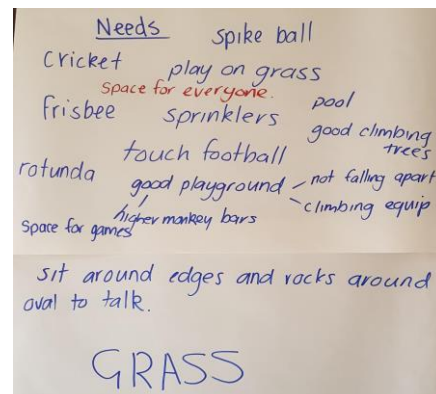 Needs
spike ball
cricket
play on grass
space for everyone.
pool
frisbee
sprinklers
good climbing
trees
touch football
rotunda
good playground
not falling apart
climbing equip
higher monkey bars
space for games
sit around edges and rocks around
oval to talk.
GRASS